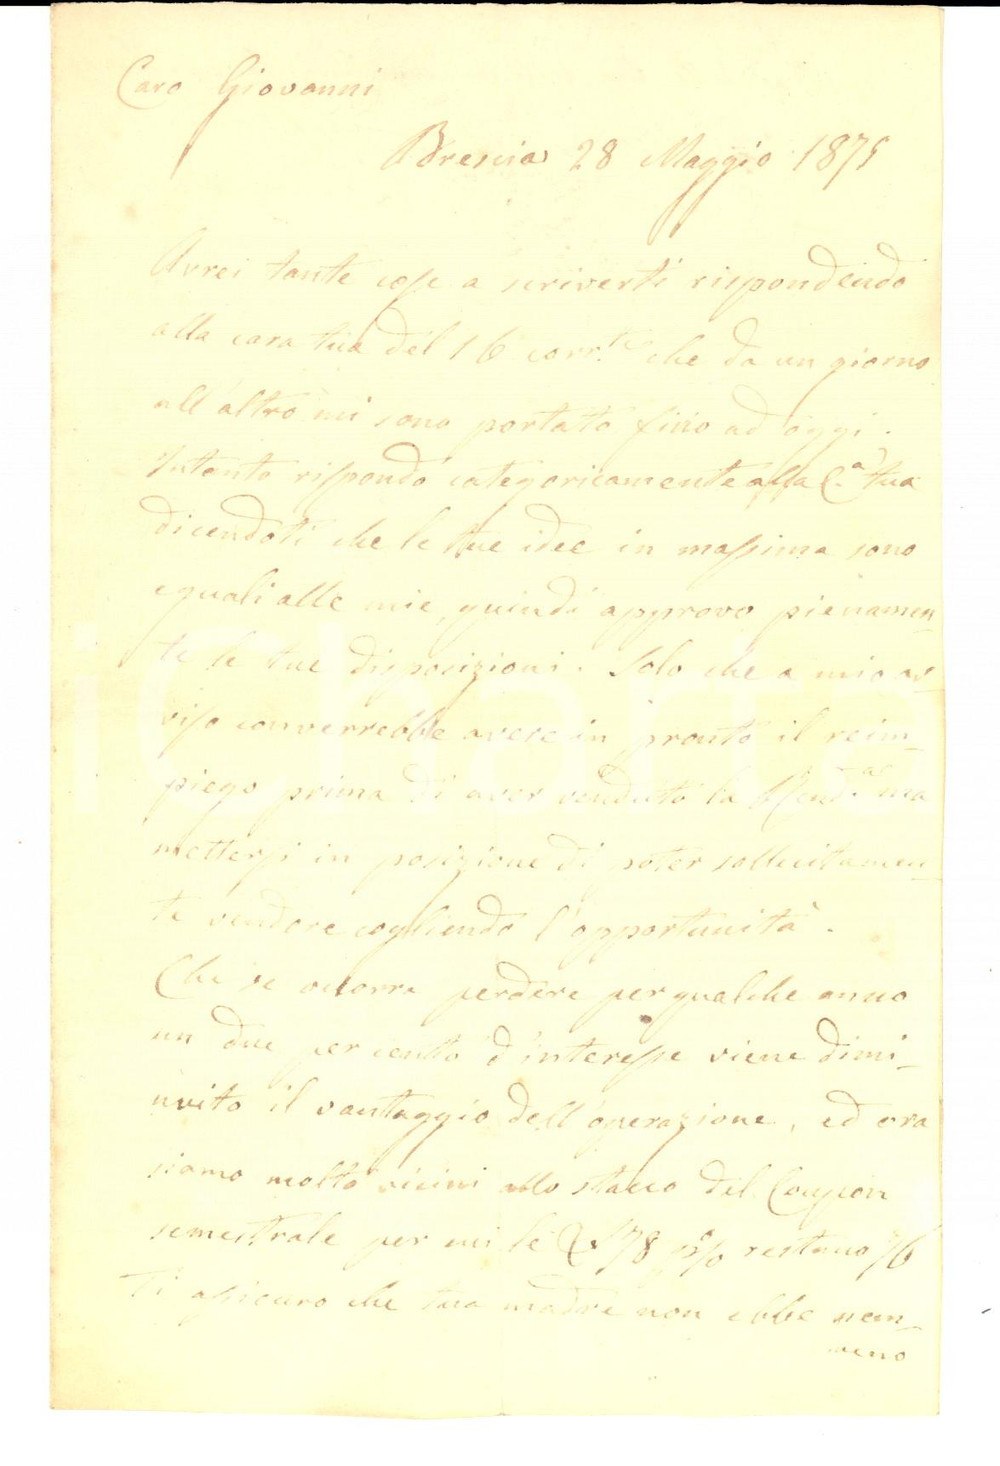 Caro Giovanni
Brescia 28 Maggio 1875
Avrei tante cose a scriverti rispondendo
alla cara tua del 16 corr.te che da un giorno
all'altro mi sono portato fino ad oggi.
Intanto rispondo categoricamente alla C.a tua
dicendoti che le tue idee in massima sono
eguali alle mie, quindi approvo pienamen-
te le tue disposizioni. Solo che a mio av-
viso converrebbe avere in pronto il reim-
piego prima di aver venduto la Rend.a ma
mettersi in posizione di poter sollecitamen-
te vendere cogliendo l'opportunità.
Che se occorre perdere per qualche anno
un due per cento d'interesse viene dimi-
nuito il vantaggio dell'operazione, ed ora
siamo molto vicini allo stacco del Coupon
semestrale per cui le 78 restano 76
Ti assicuro che tua madre non ebbe nem-
meno